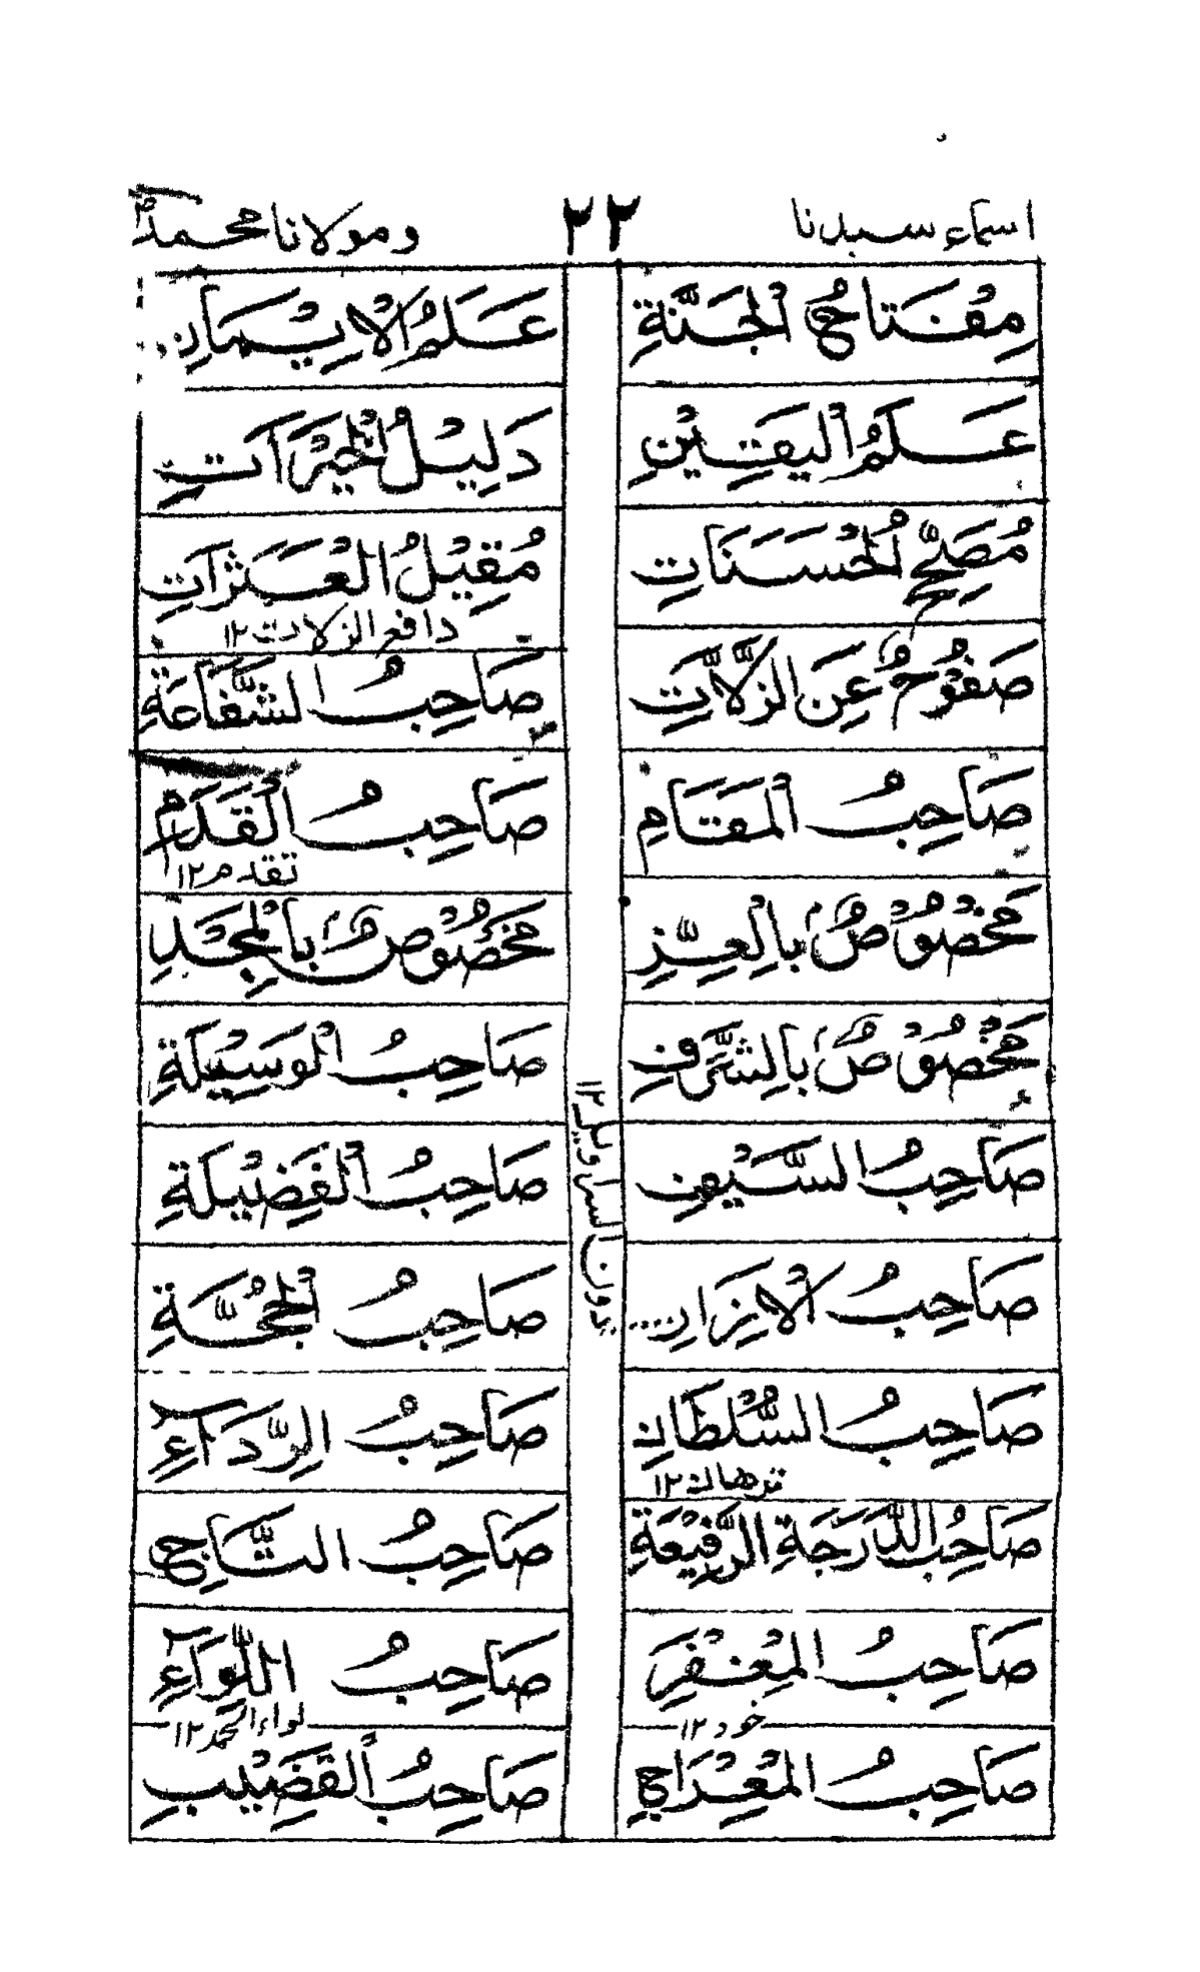 اسماء سيدنا ٢٢ ومولانا محمد
مِفْتَاحُ الْجَنَّةِ عَلَمُ الْاِيْمَانِ
عَلَمُ الْيَقِيْنِ دَلِيْلُ الْخَيْرَاتِ
مُصَحِّحُ الْحَسَنَاتِ مُقِيْلُ الْعَثَرَاتِ
دافع الزلات١٢
صَفُوْحٌ عَنِ الزَّلَّاتِ صَاحِبُ الشَّفَاعَةِ
صَاحِبُ الْمَقَامِ صَاحِبُ الْقَدَمِ
تقدم١٢
مَخْصُوْصٌ بِالْعِزِّ مَخْصُوْصٌ بِالْمَجْدِ
مَخْصُوْصٌ بِالشَّرَفِ صَاحِبُ الْوَسِيْلَةِ
صَاحِبُ السَّيْفِ صَاحِبُ الْفَضِيْلَةِ
صَاحِبُ الْاِزَارِ صَاحِبُ الْحُجَّةِ
بدون السراويل١٢
صَاحِبُ السُّلْطَانِ صَاحِبُ الرِّدَآءِ
صَاحِبُ الدَّرَجَةِ الرَّفِيْعَةِ صَاحِبُ التَّاجِ
صَاحِبُ الْمِغْفَرِ صَاحِبُ اللِّوَآءِ
خود١٢ لواء الحمد١٢
صَاحِبُ الْمِعْرَاجِ صَاحِبُ الْقَضِيْبِ